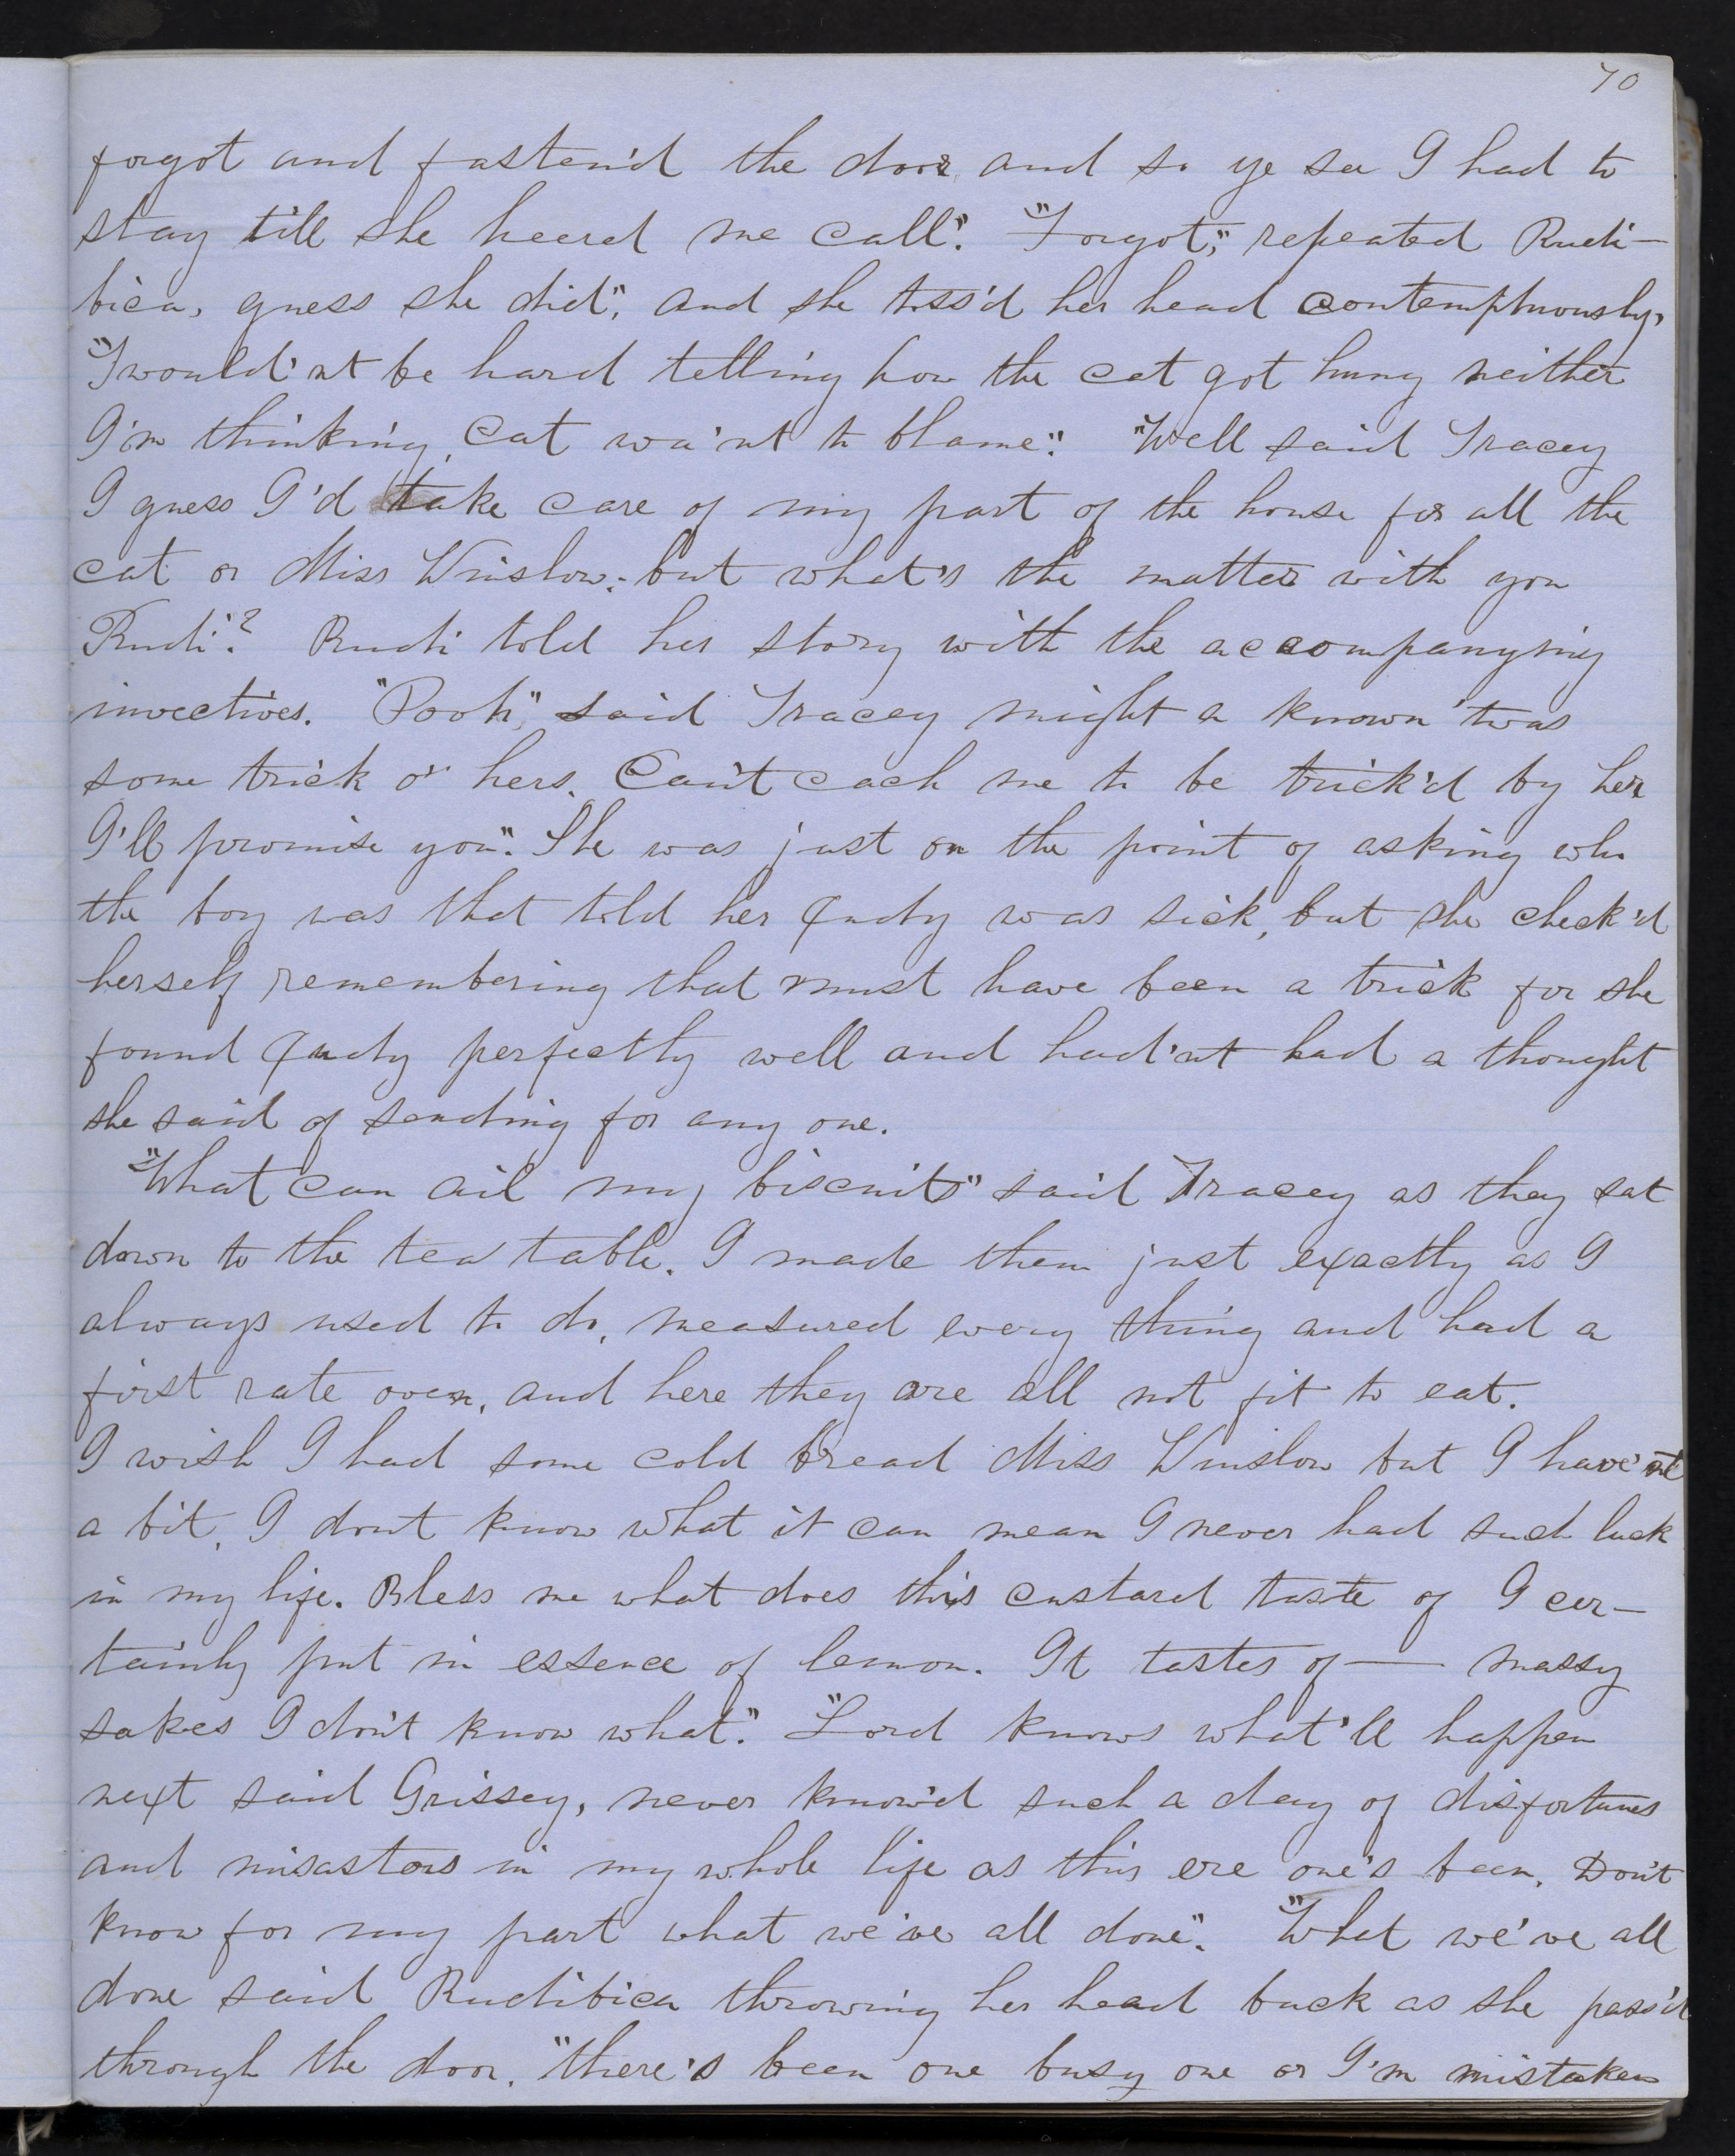 70
forgot and fasten'd the door, and so ye see I had to
stay till she heerd me call." "Forgot," repeated Rudi-
bica, guess she did", and she toss'd her head contemptuously,
"Twould'nt be hard telling how the cat got hung neither
I'm thinking, Cat wa'nt to blame." "Well said Tracey
I guess I'd take care of my part of the house for all the
cat or Miss Winslow. but what's the matter with you
Rudi"? Rudi told her story with the accompanying
invectives. "Pooh," said Tracey might a known 'twas
some trick o' hers. Can't cach me to be trick'd by her
I'll promise you." She was just on the point of asking who
the boy was that told her Judy was sick, but she check'd
herself remembering that must have been a trick for she
found Judy perfectly well and had'nt had a thought
she said of sending for any one.
"What can ail my biscuits" said Tracey as they sat
down to the tea table. I made them just exactly as I
always used to do, measured every thing and had a
first rate oven, and here they are all not fit to eat.
I wish I had some cold bread Miss Winslow but I have'nt
a bit, I dont know what it can mean I never had such luck
in my life. Bless me what does this custard taste of I cer-
tainly put in essence of lemon. It tastes of — massy
sakes I don't know what." "Lord knows what'll happen
next said Grissey, never know'd such a day of disfortunes
and misasters in my whole life as this ere one's been. Don't
know for my part what we've all done". "What we've all
done said Rudibica throwing her head back as she pass'd
through the door. "there's been one busy one or I'm mistaken